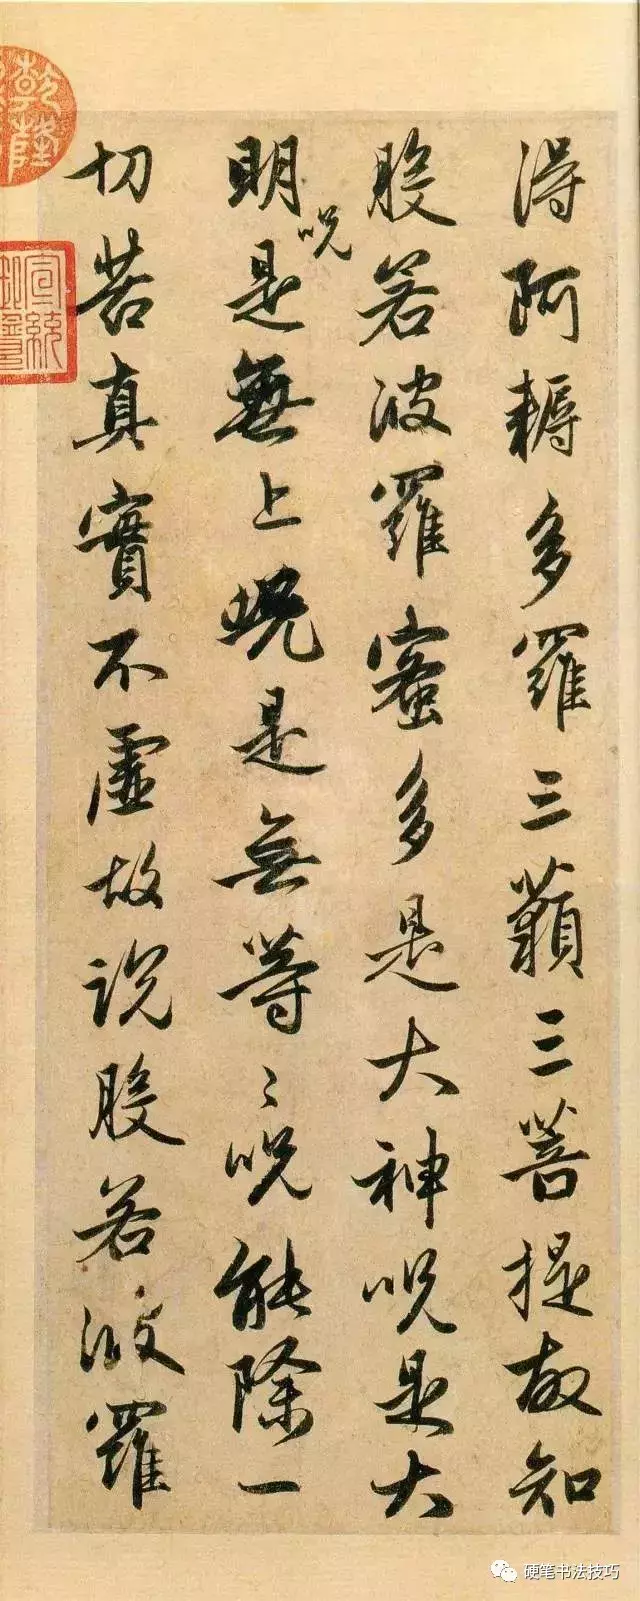 得阿耨多羅三藐三菩提故知
般若波羅蜜多是大神呪是大
明呪是無上呪是無等〻呪能除一
切苦真實不虛故說般若波羅
乾隆
宣統
硬笔书法技巧